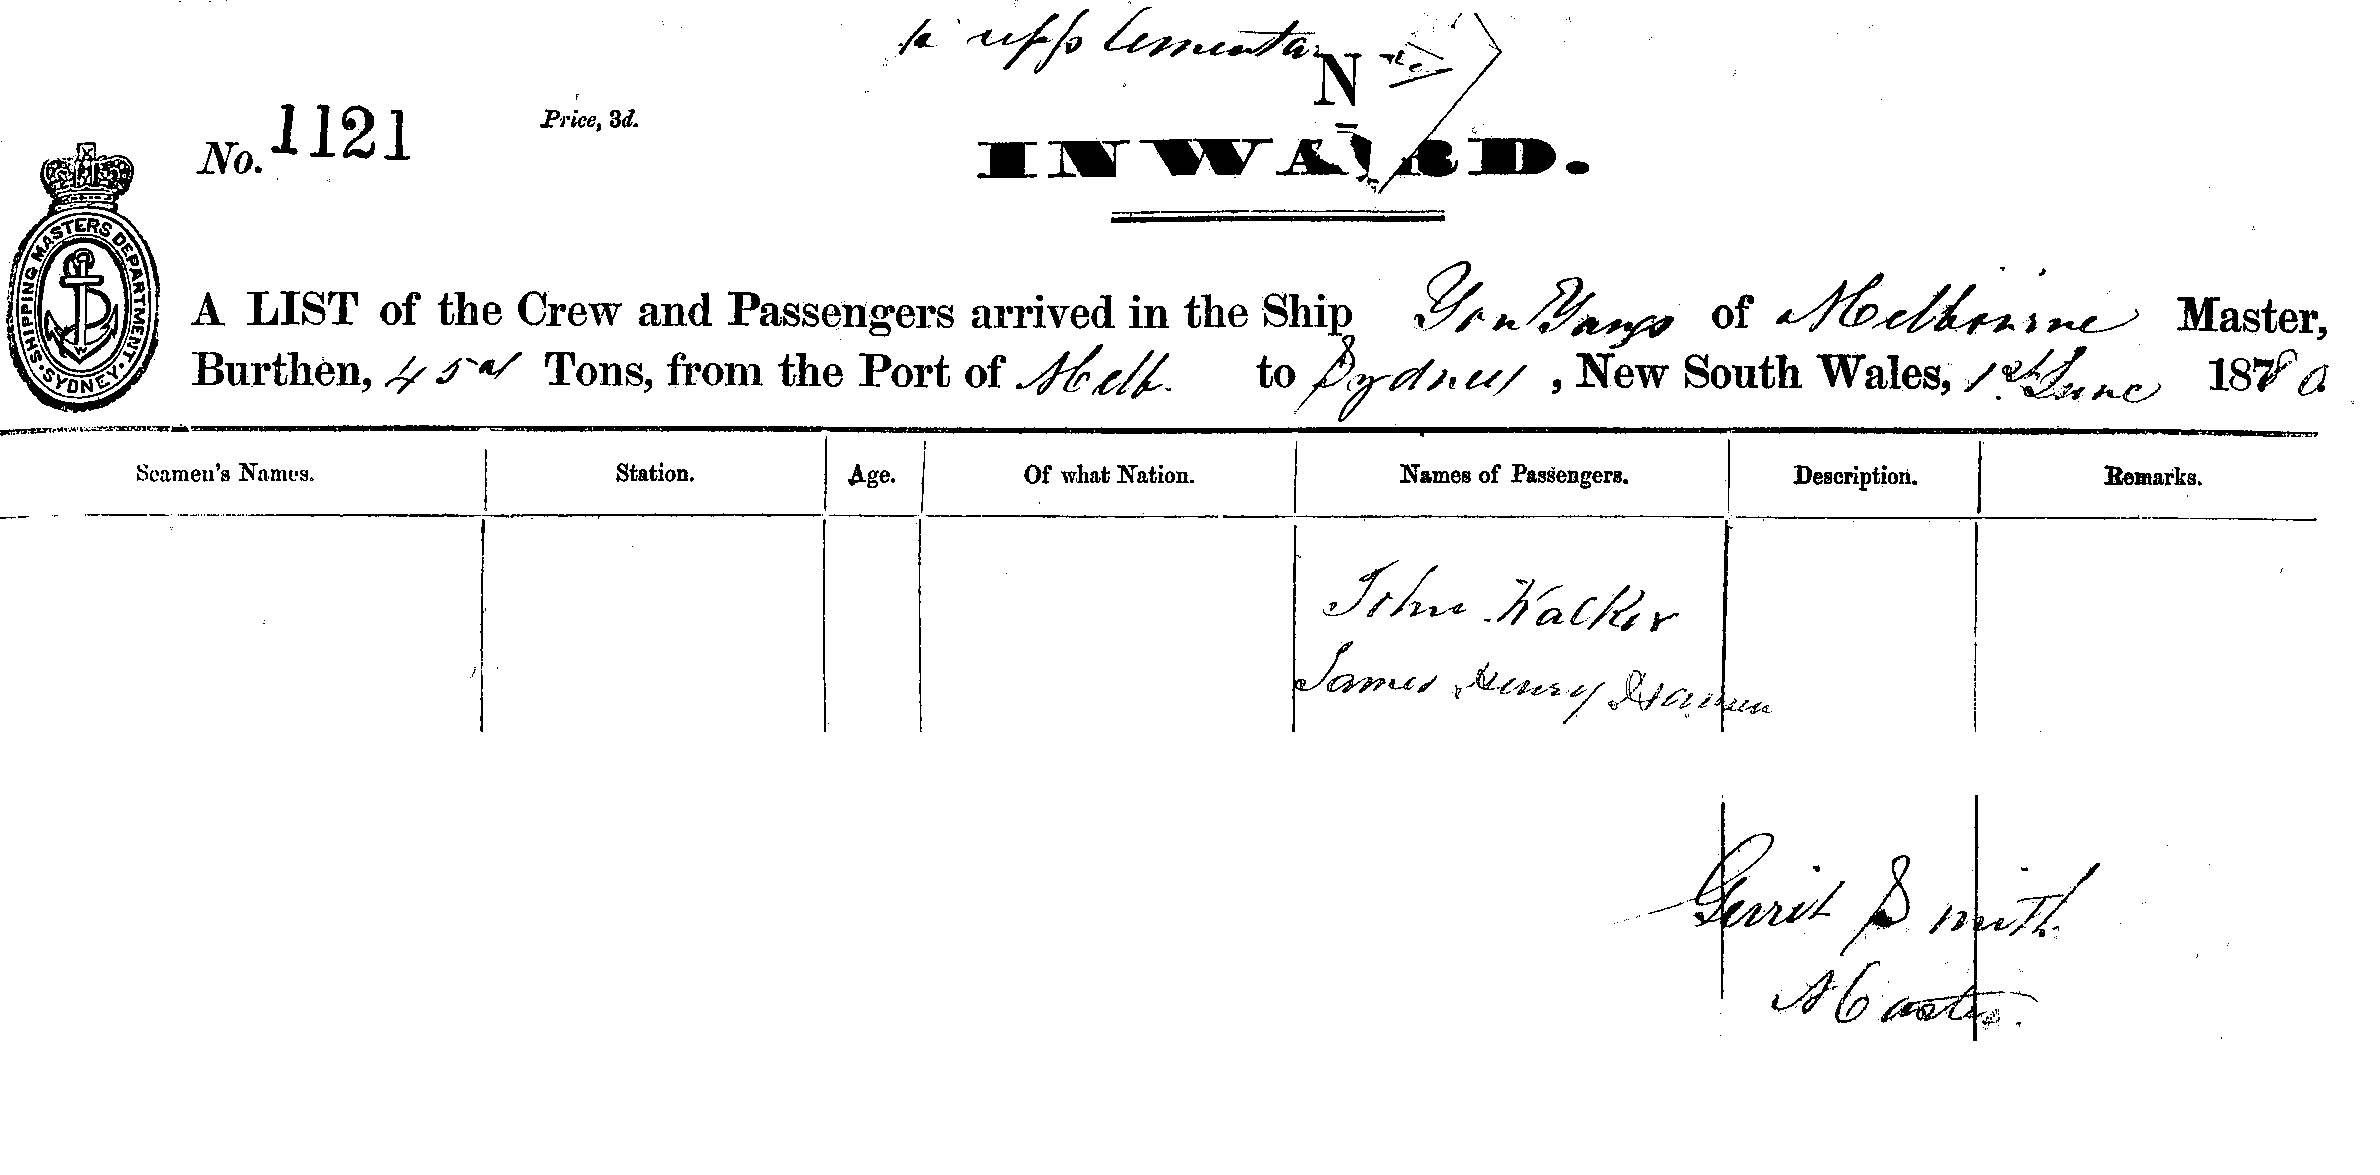 supplementary
N
No. 1121
Price, 3d.
INWARD.
SHIPPING MASTERS DEPARTMENT. SYDNEY.
A LIST of the Crew and Passengers arrived in the Ship You Yangs of Melbourne Master,
Burthen, Tons, from the Port of Melb. to Sydney, New South Wales, 1st June 1880
Seamen's Names. Station. Age. Of what Nation. Names of Passengers. Description. Remarks.
John Walker
James Henry
Gerrit Smith
Master.